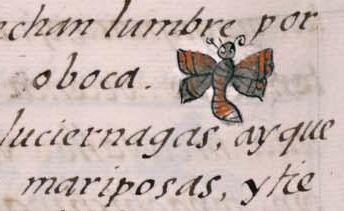 echan lumbre por
oboca.
luciernagas, ay que
mariposas, y tie